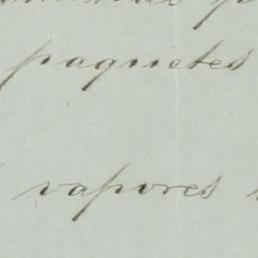 paquetes
vapores